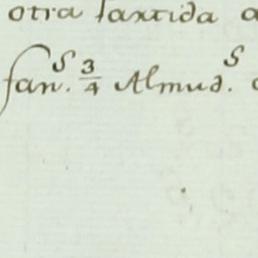 otra partida a
fan.s 3/4 Almud.s